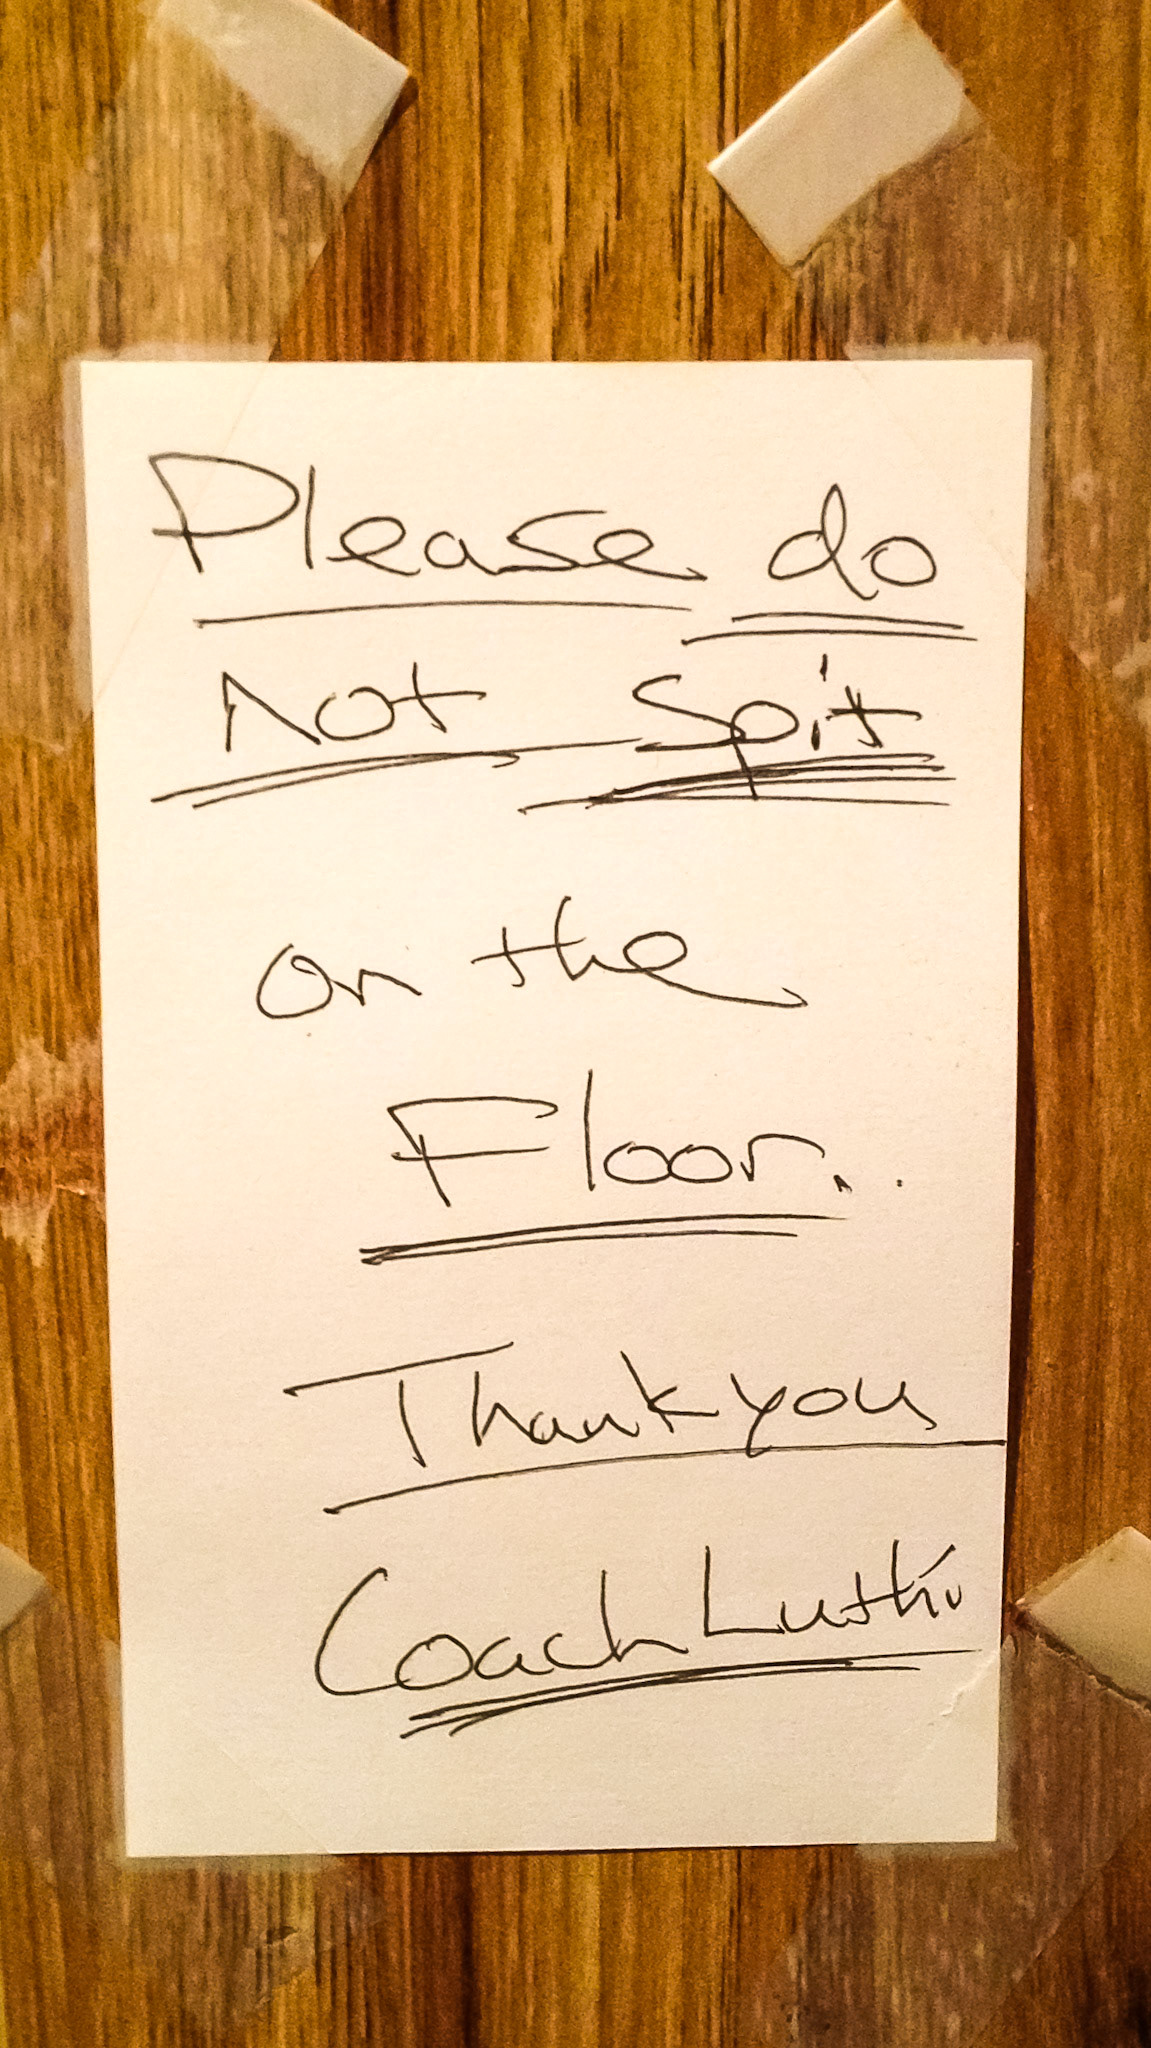 Please do
Not Spit
on the
Floor..
Thank you
Coach